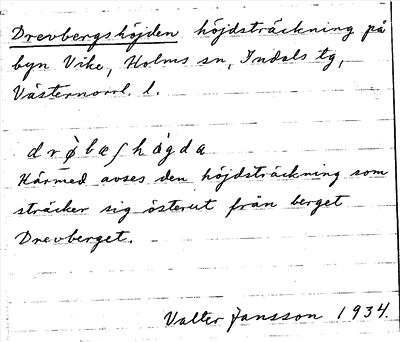 Drevbergshöjden höjdsträckning på
byn Vike, Holms sn, Indals tg,
Västernorrl. l.
drø̀bæʃhø̀gda
Härmed avses den höjdsträckning som
sträcker sig österut från berget
Drevberget.
Valter Jansson 1934.